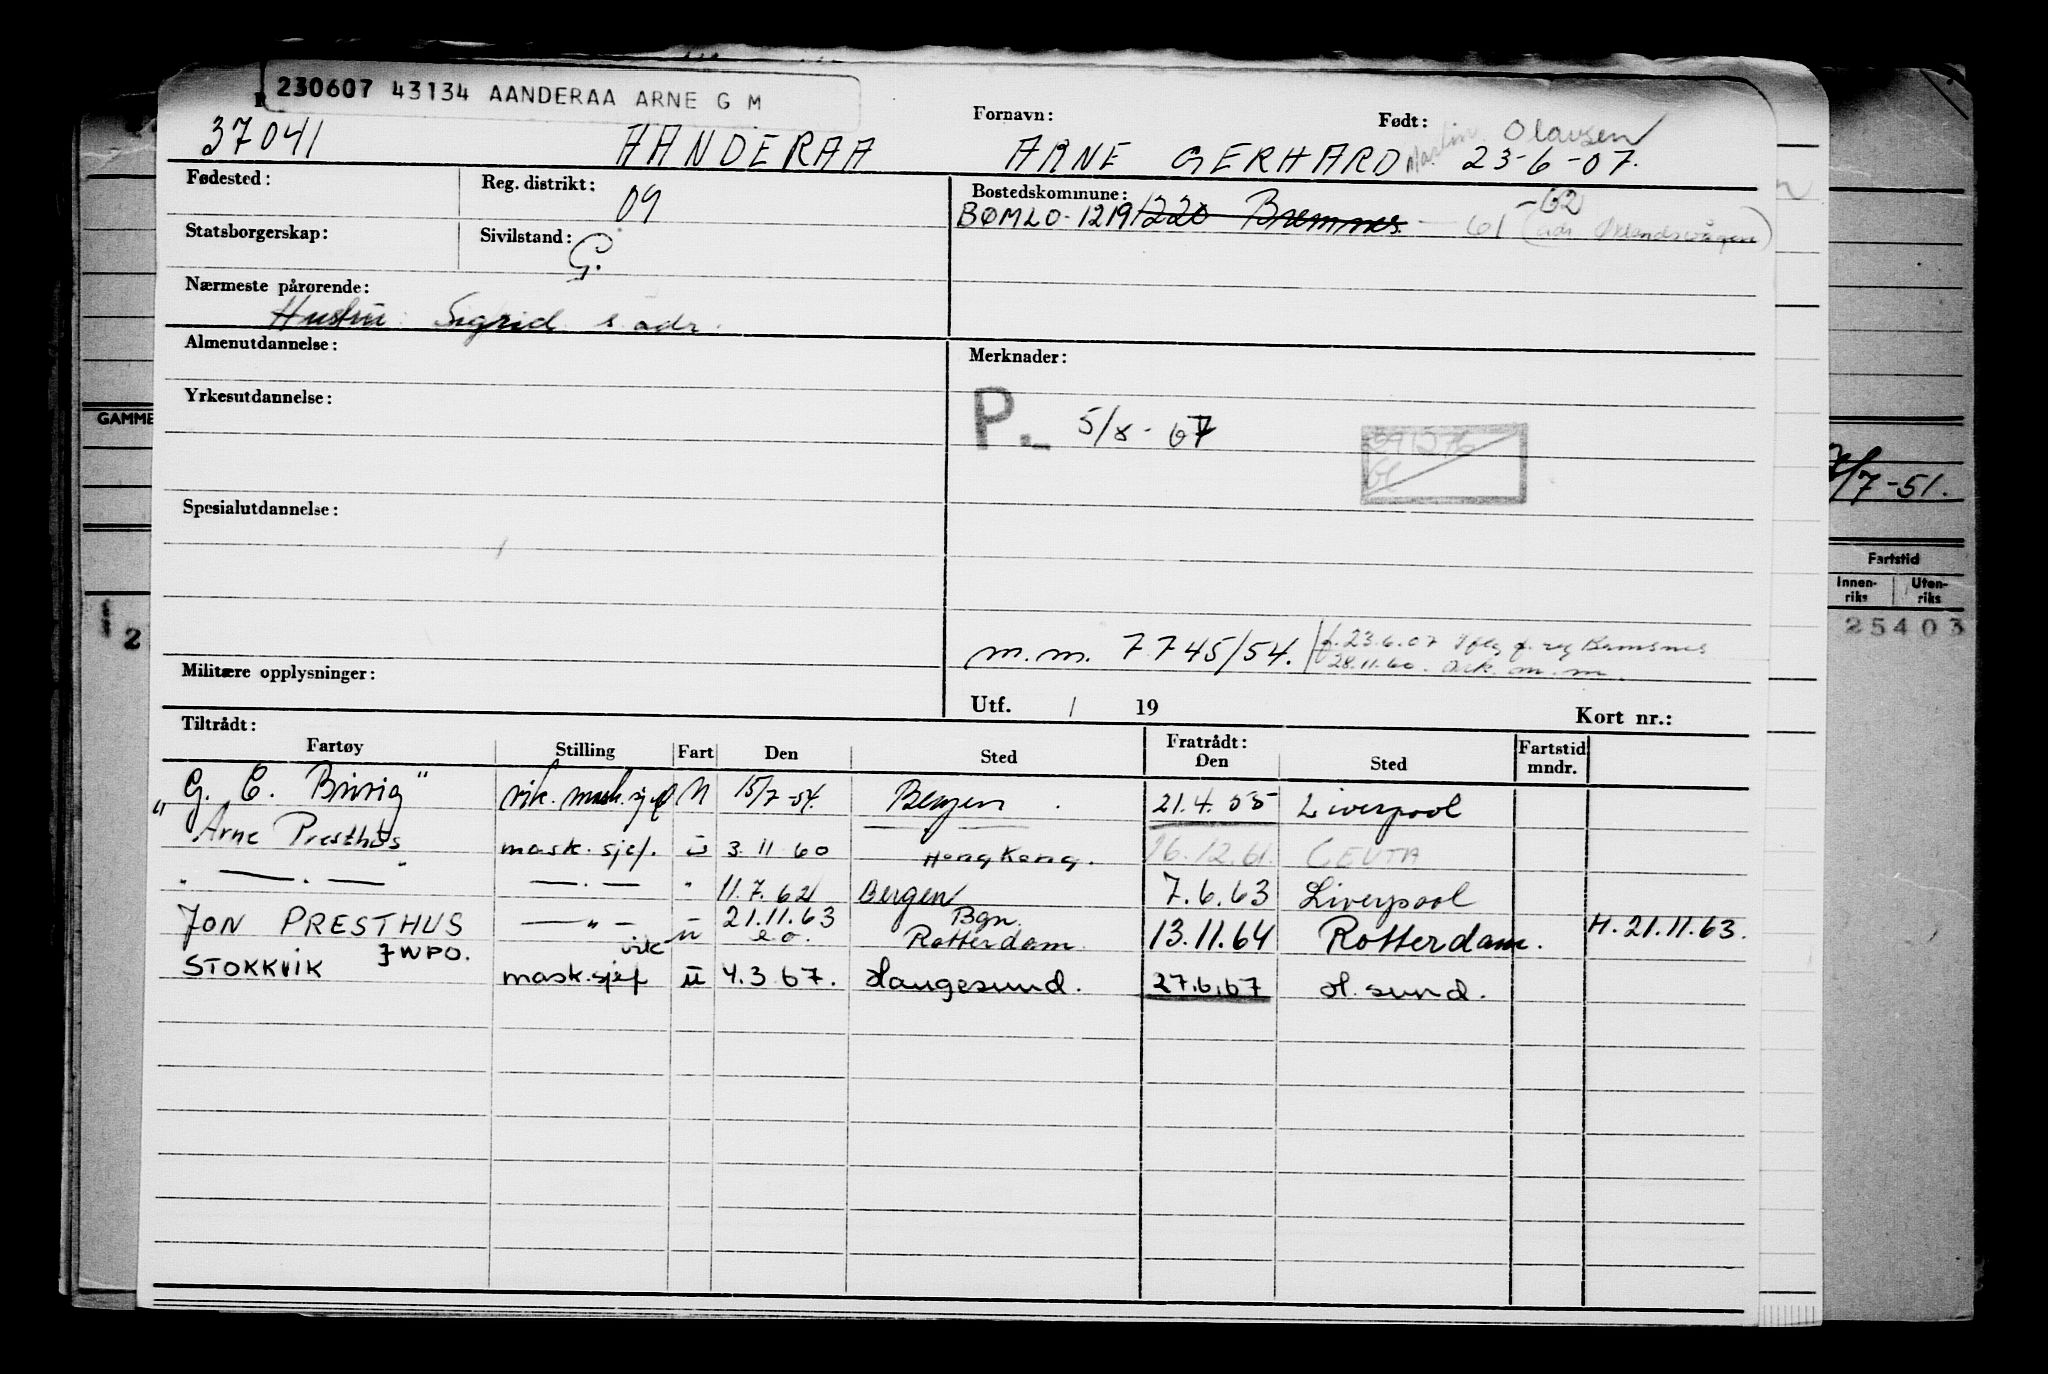 230607 43134 AANDERAA ARNE G M
Fornavn: Født:
37041 AANDERAA ARNE GERHARD Martin Olausen 23-6-07.
Fødested: Reg. distrikt: 09 Bostedskommune:
BØMLO-1219 1220 Bremnes - 61 -62
Statsborgerskap: Sivilstand: G.
Nærmeste pårørende:
Hustru: Sigrid s. adr.
Almenutdannelse: Merknader:
Yrkesutdannelse:
P.- 5/8-67
GAMME
7-51.
Spesialutdannelse:
Fartstid
Innen-riks Uten-riks
25403
2
m.m. 7745/54. f. 23.6.07 Iflg f. reg Bremnes
28.11.60. Ark. m.m.
Militære opplysninger:
Utf. / 19 Kort nr.:
Tiltrådt: Fratrådt: Fartstid mndr.
Fartøy Stilling Fart Den Sted Den Sted
G. C. Brøvig" vik. mask.sjef U 15/7-54. Bergen. 21.4.55 Liverpool
"Arne Presthus mask. sjef. ü 3.11 60 Hong Kong. 16.12.61. CEUTA
" —.— " —.— " 11.7.62 Bergen 7.6.63 Liverpool
JON PRESTHUS —"— ü 21.11.63 Bgn.
e.o. Rotterdam 13.11.64 Rotterdam. H. 21.11.63.
STOKKVIK JWPO. vik mask.sjef ü 4.3.67. Haugesund. 27.6.67 H.sund.